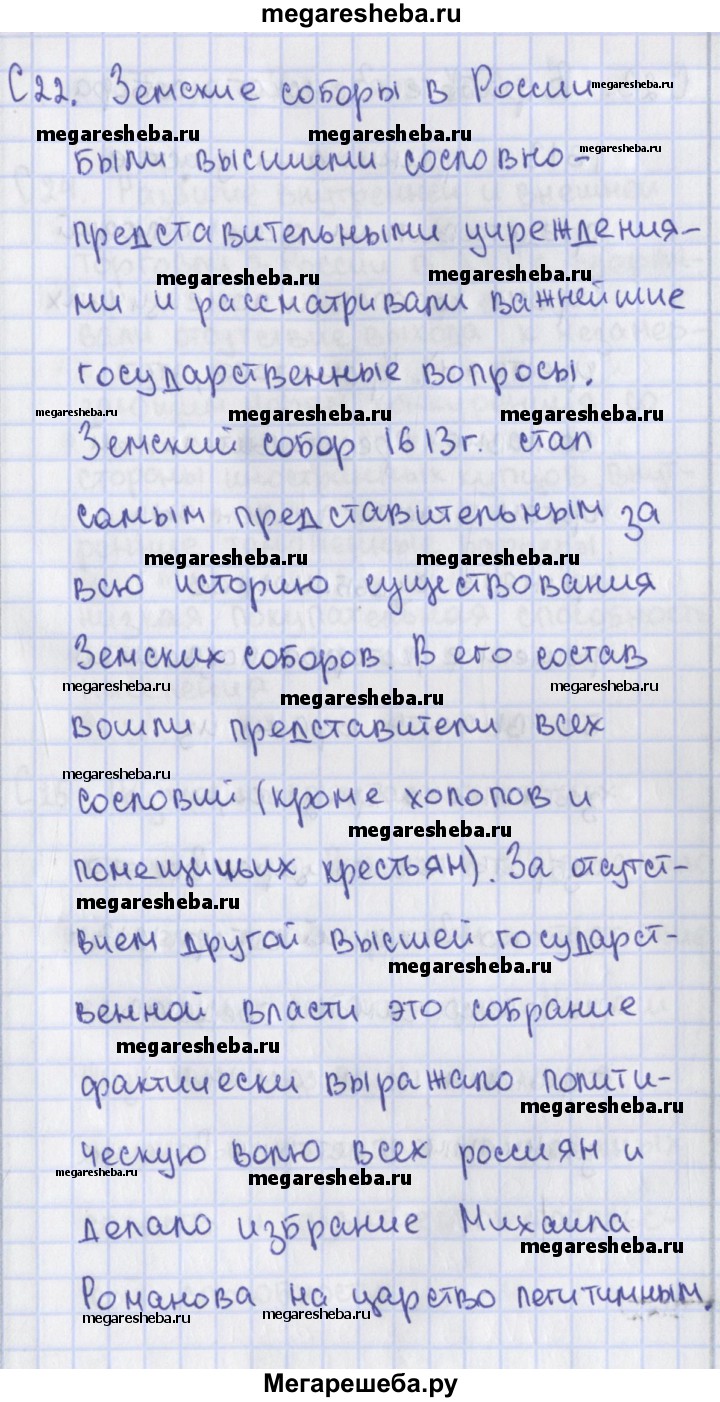 megaresheba.ru
С 22. Земские соборы в России
megaresheba.ru
megaresheba.ru megaresheba.ru
были высшими сословно-
megaresheba.ru
представительными учреждения-
megaresheba.ru megaresheba.ru
ми и рассматривали важнейшие
государственные вопросы.
megaresheba.ru megaresheba.ru megaresheba.ru
Земский собор 1613г. стал
самым представительным за
megaresheba.ru megaresheba.ru
всю историю существования
Земских соборов. В его состав
megaresheba.ru megaresheba.ru megaresheba.ru
вошли представители всех
megaresheba.ru
сословий (кроме холопов и
megaresheba.ru
помещицьих крестьян). За отсутст-
megaresheba.ru
вием другой высшей государст-
megaresheba.ru
венной власти это собрание
megaresheba.ru
фактически выражало полити-
megaresheba.ru
ческую волю всех россиян и
megaresheba.ru megaresheba.ru
делало избрание Михаила
megaresheba.ru
Романова на царство легитимным.
megaresheba.ru megaresheba.ru
Мегарешеба.ру